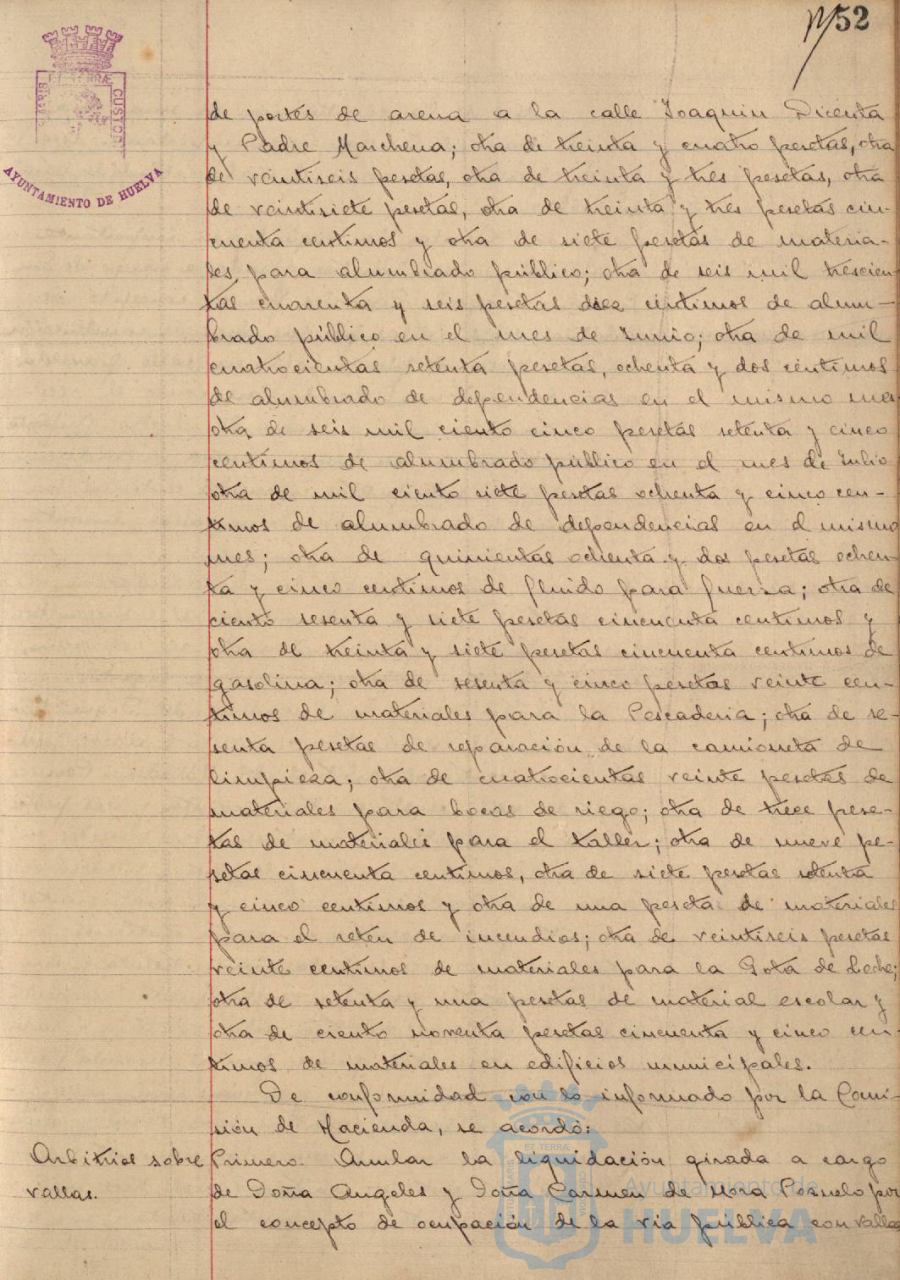 52
PORTUS MARIS ET TERRÆ CUSTODIA
AYUNTAMIENTO DE HUELVA
de portes de arena a la calle Joaquin Dicenta
y Padre Marchena; otra de treinta y cuatro pesetas, otra
de veintiseis pesetas, otra de treinta y tres pesetas, otra
de veintisiete pesetas, otra de treinta y tres pesetas cin-
cuenta centimos y otra de siete pesetas de materia-
les para alumbrado público; otra de seis mil trescien-
tas cuarenta y seis pesetas diez centimos de alum-
brado público en el mes de Junio; otra de mil
cuatrocientas setenta pesetas, ochenta y dos centimos
de alumbrado de dependencias en el mismo mes
otra de seis mil ciento cinco pesetas setenta y cinco
centimos de alumbrado público en el mes de Julio
otra de mil ciento siete pesetas ochenta y cinco cen-
timos de alumbrado de dependencias en el mismo
mes; otra de quinientas ochenta y dos pesetas ochen-
ta y cinco centimos de fluido para fuerza; otra de
ciento sesenta y siete pesetas cincuenta centimos y
otra de treinta y siete pesetas cincuenta centimos de
gasolina; otra de sesenta y cinco pesetas veinte cen-
timos de materiales para la Pescaderia; otra de se-
senta pesetas de reparación de la camioneta de
limpieza; otra de cuatrocientas veinte pesetas de
materiales para bocas de riego; otra de trece pese-
tas de materiales para el taller; otra de nueve pe-
setas cincuenta centimos, otra de siete pesetas setenta
y cinco centimos y otra de una peseta de materiales
para el reten de incendios; otra de veintiseis pesetas
veinte centimos de materiales para la Gota de Leche;
otra de setenta y una pesetas de material escolar y
otra de ciento noventa pesetas cincuenta y cinco cen-
timos de materiales en edificios municipales.
De conformidad con lo informado por la Comi-
sión de Hacienda, se acordó:
Arbitrios sobre
vallas.
Primero. Anular la liquidación girada a cargo
de Doña Angeles y Doña Carmen de Mora Pozuelo por
el concepto de ocupación de la via pública con vallas
Ayuntamiento de
HUELVA